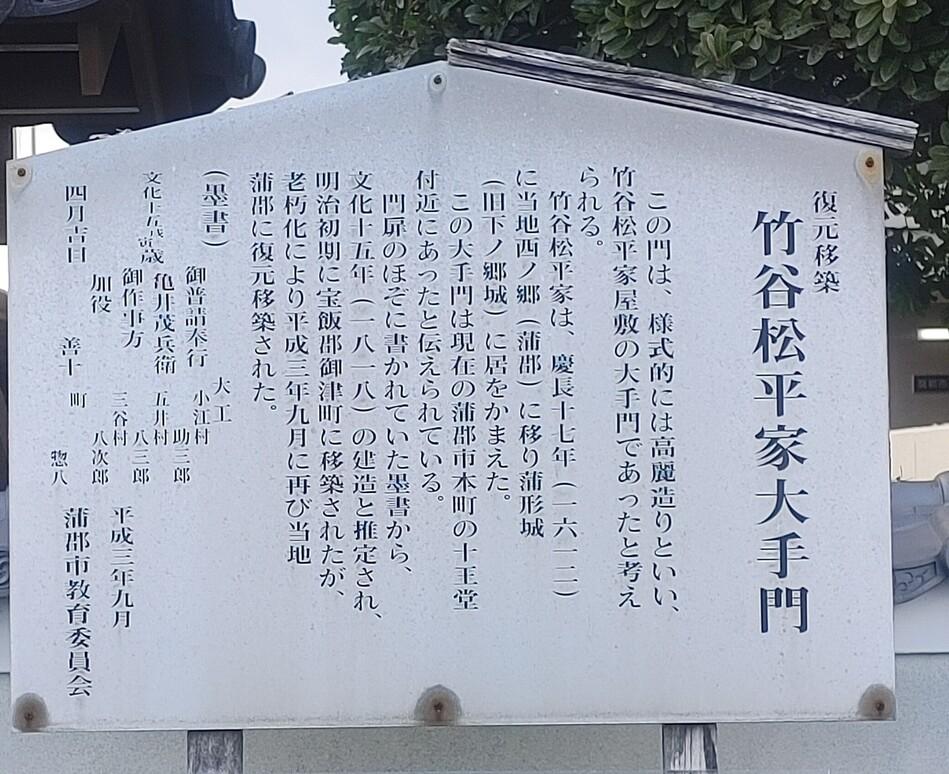 復元移築
竹谷松平家大手門
この門は、様式的には高麗造りといい、
竹谷松平家屋敷の大手門であったと考え
られる。
竹谷松平家は、慶長十七年(一六一二)
に当地西ノ郷(蒲郡)に移り蒲形城
(旧下ノ郷城)に居をかまえた。
この大手門は現在の蒲郡市本町の十王堂
付近にあったと伝えられている。
門扉のほぞに書かれていた墨書から、
文化十五年(一八一八)の建造と推定され、
明治初期に宝飯郡御津町に移築されたが、
老朽化により平成三年九月に再び当地
蒲郡に復元移築された。
(墨書)
大工
御普請奉行 小江村
助三郎
亀井茂兵衛 五井村
八三郎
御作事方 三谷村
八次郎
加役
文化十五歳
四月吉日
善十 町
惣八
平成三年九月
蒲郡市教育委員会